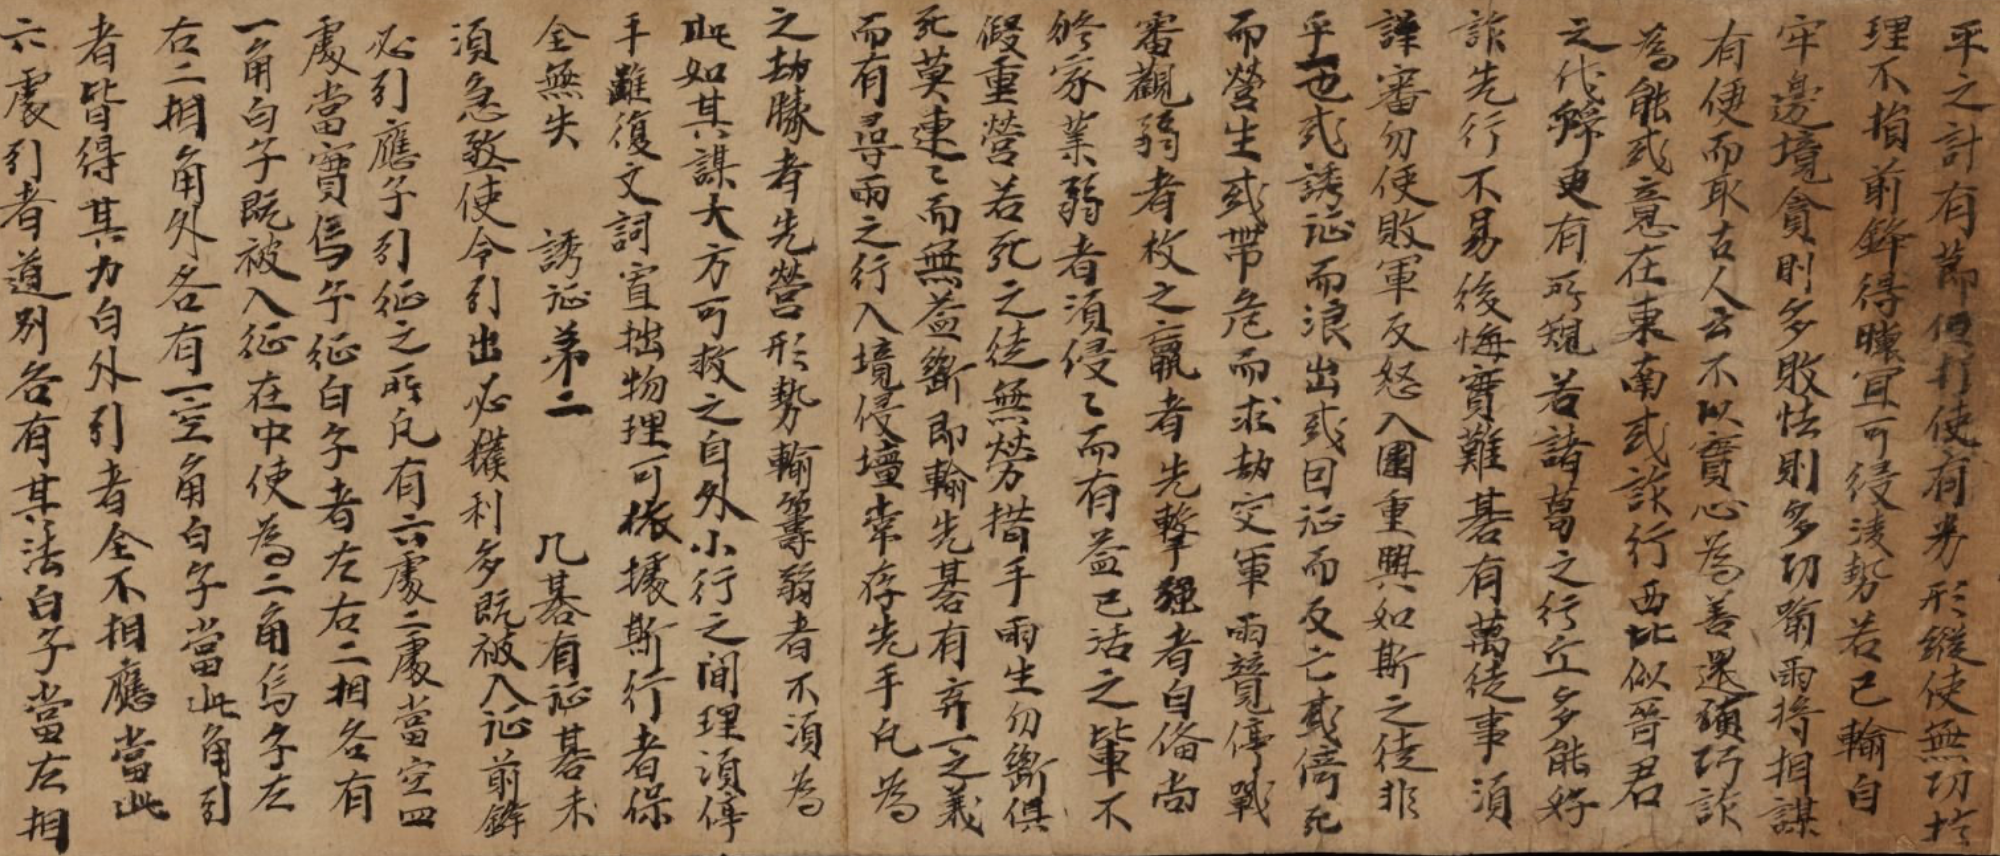 平之計有節但打使有劣形縱使無功於
理不損前鋒得曉宜可侵淩勢若已輸自
牢邊境貪則多敗怯則多功喻兩將相謀
有便而取古人云不以實心為善還須巧詐
為能或意在東南或詐行西北似晉君
之伐虢更有所窺若諸葛之行丘多能好
詐先行不易後悔實難碁有萬徒事須
謹審勿使敗軍反怒入圍重興如斯之徒非
乎一也或誘征而浪出或因征而反亡或倚死
而營生或帶危而求劫交軍兩競停戰
審觀弱者枚之羸者先擊強者自俻尚
修家業弱者須侵〻而有益已活之輩不
假重營若死之徒無勞措手兩生勿斷俱
死莫連〻而無益斷即輸先碁有弃一之義
而有尋兩之行入境侵壃常存先手凡為
之劫勝者先營形勢輸籌弱者不須為
此如其謀大方可救之自外小行之間理須停
手雖復文詞寘拙物理可依據斯行者保
全無失　誘征第二　凡碁有征碁未
須急煞使令引出必獲利多既被入征前鋒
必引應子引征之所凡有六處二處當空四
處當實烏子征白子者左右二相各有
一角白子既被入征在中使為二角烏子左
右二相角外各有一空角白子當此角引
者皆得其力自外引者全不相應當此
六處引者道別各有其法白子當左相